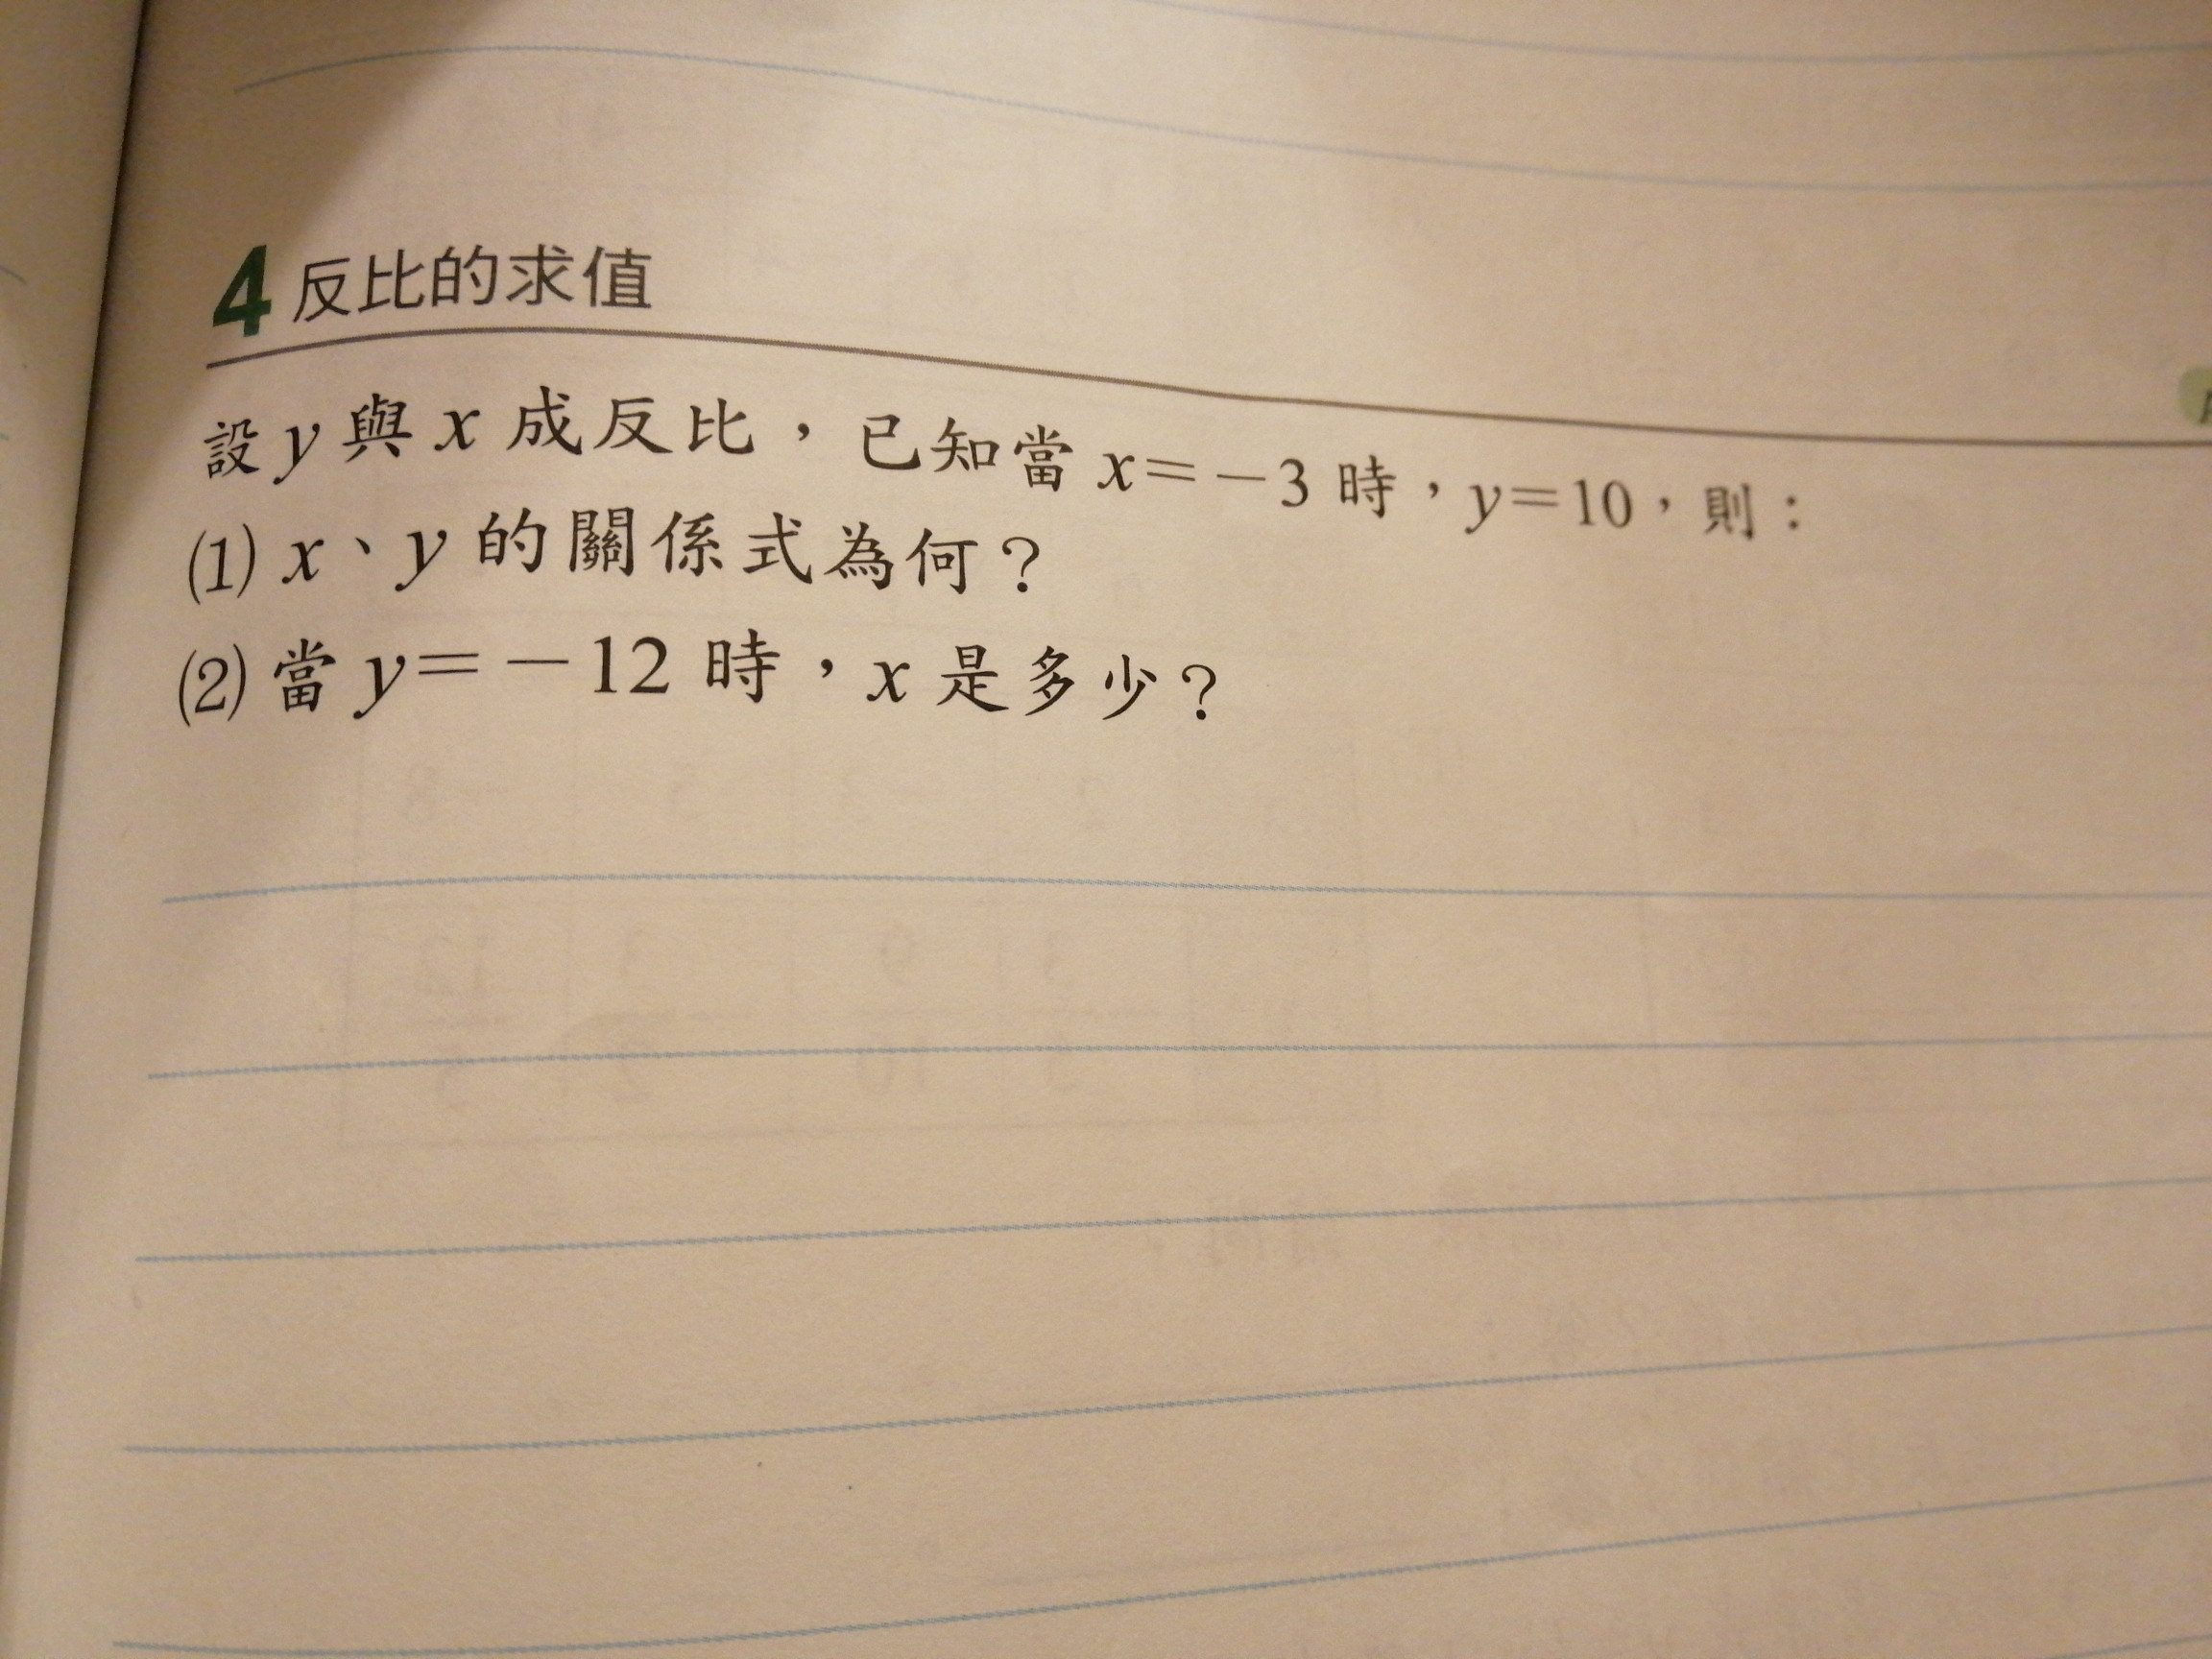 4 反比的求值
設 y 與 x 成反比，已知當 x＝－3 時，y＝10，則：
(1) x、y 的關係式為何？
(2) 當 y＝－12 時，x 是多少？